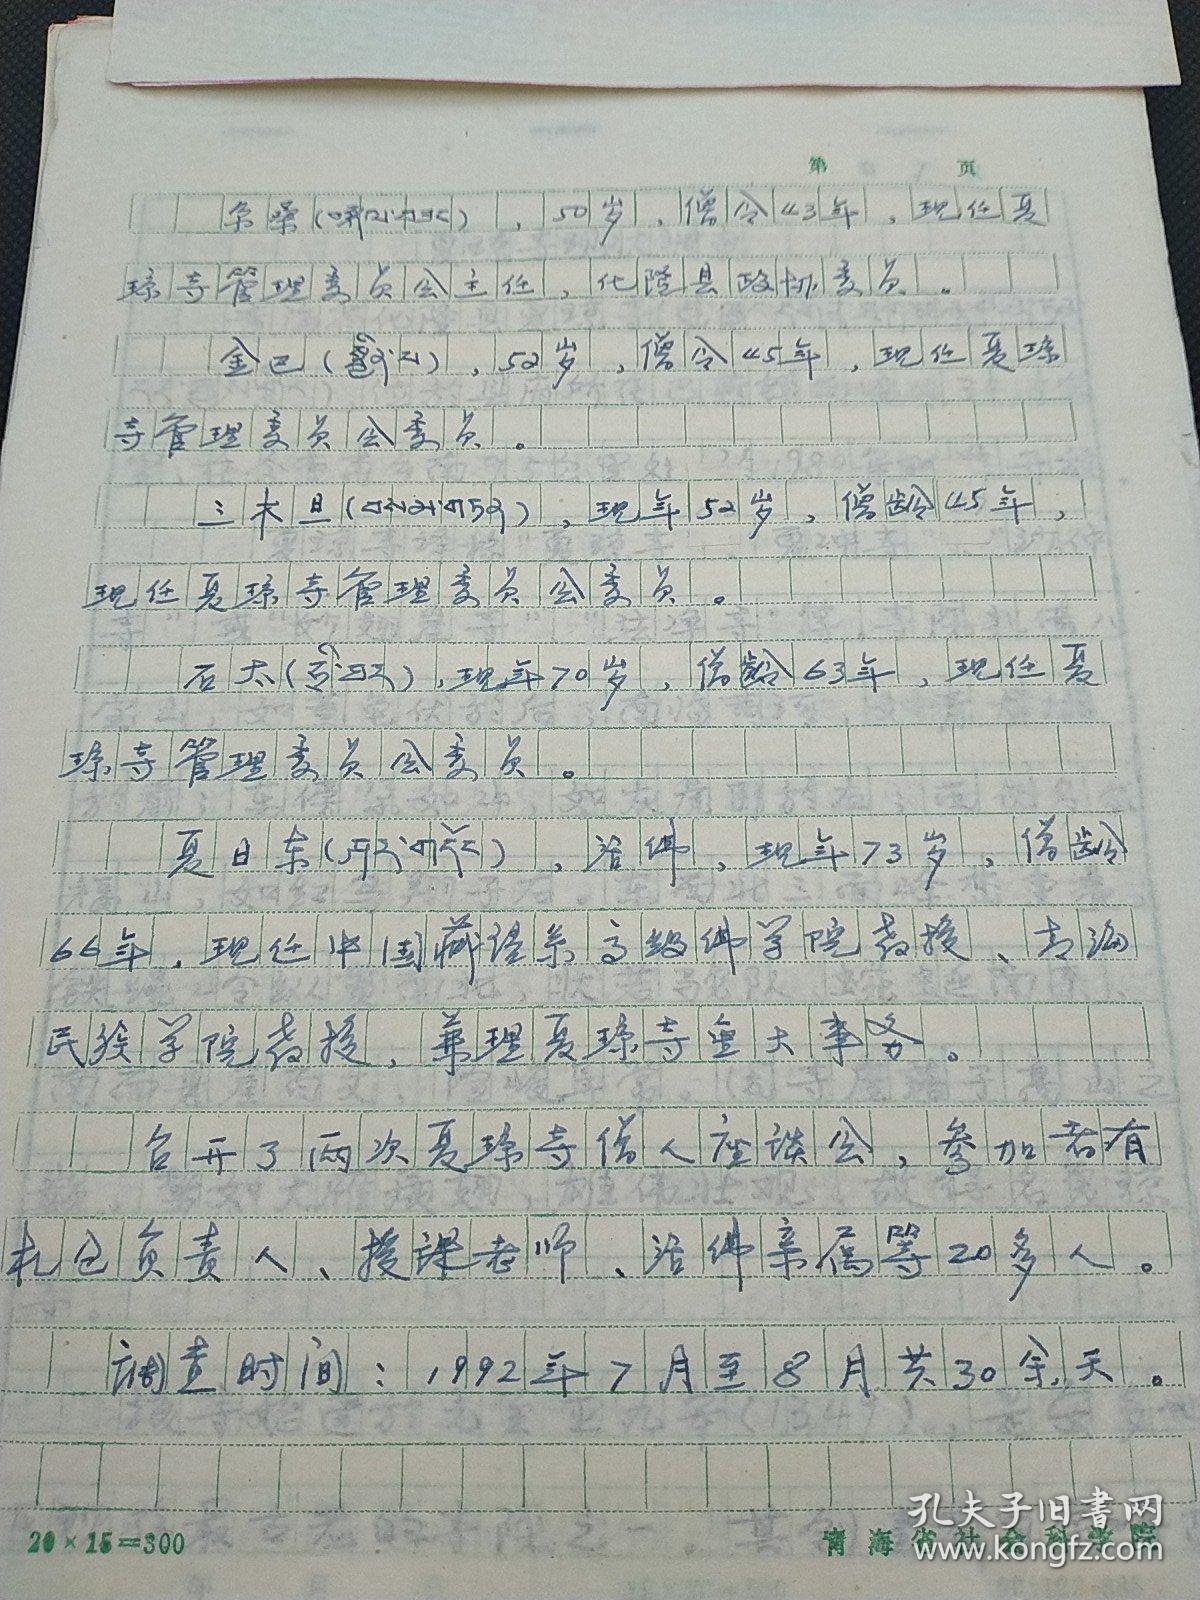 第 页
尕桑( ），50岁，僧令43年，现任夏
琼寺管理委员会主任，化隆县政协委员。
金巴( ），52岁，僧令45年，现任夏琼
寺管理委员会委员。
三木旦( ），现年52岁，僧龄45年，
现任夏琼寺管理委员会委员。
石太( ），现年70岁，僧龄63年，现任夏
琼寺管理委员会委员。
夏日东( ），活佛，现年73岁，僧龄
66年，现任中国藏语系高级佛学院教授、青海
民族学院教授，兼理夏琼寺重大事务。
召开了两次夏琼寺僧人座谈会，参加者有
札仓负责人、授课老师、活佛亲属等20多人。
调查时间：1992年7月至8月共30余天。
20×15=300
青海省社会科学院
孔夫子旧书网
www.kongfz.com